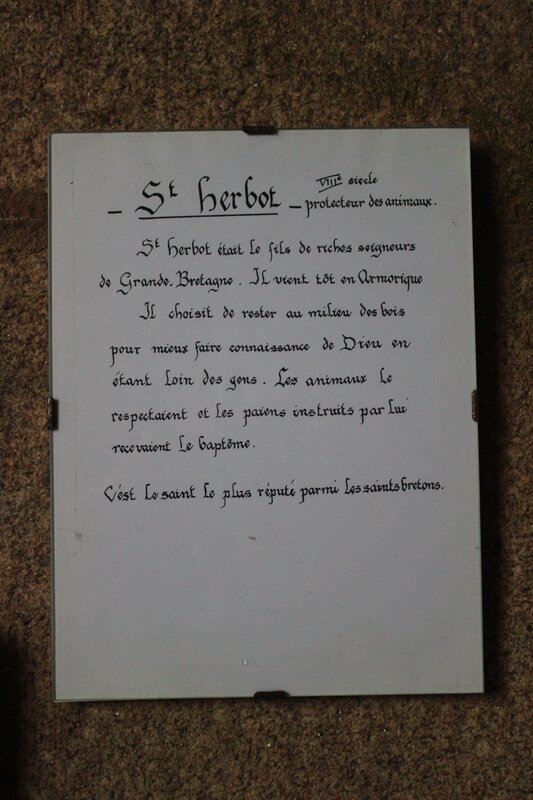 VIIIe siècle
– St herbot – protecteur des animaux.
St herbot était le fils de riches seigneurs
de Grande-Bretagne. Il vient tôt en Armorique
Il choisit de rester au milieu des bois
pour mieux faire connaissance de Dieu en
étant loin des gens. Les animaux le
respectaient et les païens instruits par lui
recevaient le baptême.
C'est le saint le plus réputé parmi les saints bretons.